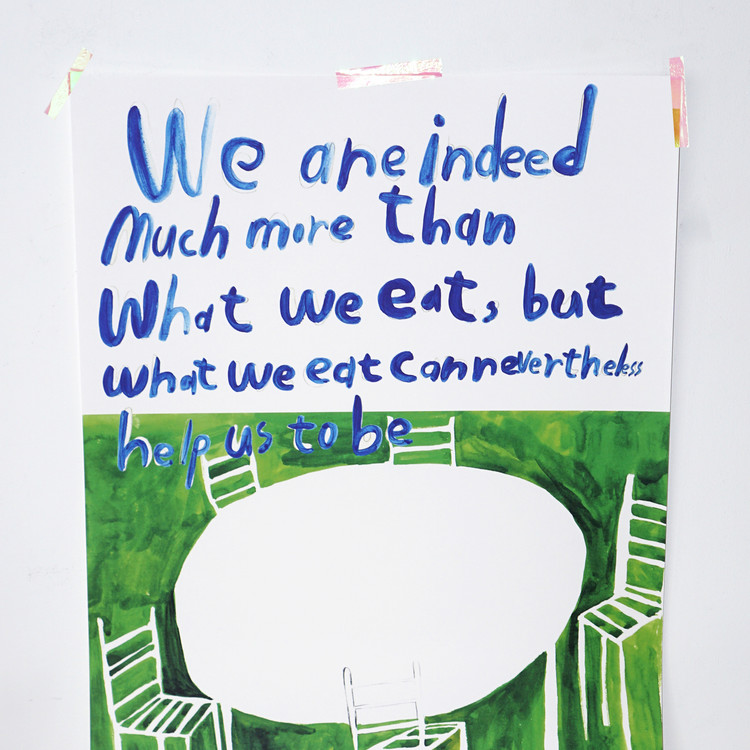 We are indeed
Much more than
What we eat, but
what we eat can nevertheless
help us to be